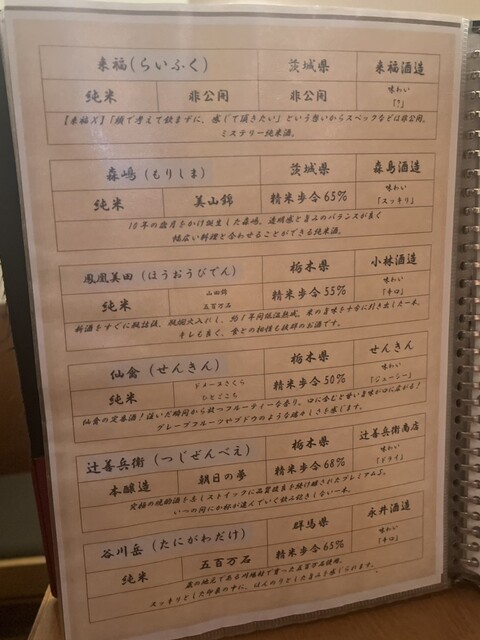 来福(らいふく) 茨城県 来福酒造
純米 非公開 非公開 味わい「?」
【来福X】「頭で考えて飲まずに、感じて頂きたい」という想いからスペックなどは非公開。
ミステリー純米酒。
森嶋(もりしま) 茨城県 森島酒造
純米 美山錦 精米歩合65% 味わい「スッキリ」
10年の歳月をかけ誕生した森嶋。透明感と旨みのバランスが良く
幅広い料理と合わせることができる純米酒。
鳳凰美田(ほうおうびでん) 栃木県 小林酒造
純米 山田錦 五百万石 精米歩合55% 味わい「辛口」
新酒をすぐに瓶詰後、瓶燗火入れし、約1年間低温熟成。米の旨味を十分に引き出した一本。
キレも良く、食との相性も抜群のお酒です。
仙禽(せんきん) 栃木県 せんきん
純米 ドメーヌさくら ひとごこち 精米歩合50% 味わい「ジューシー」
仙禽の定番酒!注いだ瞬間から放つフルーティーな香り。口に含むと甘い旨味が口に広がる!
グレープフルーツやブドウのような瑞々しさを感じます。
辻善兵衛(つじぜんべえ) 栃木県 辻善兵衛商店
本醸造 朝日の夢 精米歩合68% 味わい「ドライ」
究極の晩酌酒を目しストイックに品質改良を続け醸されたプレミアム本。
いつの間にか杯が進んでいく飲み飽きしない一本。
谷川岳(たにがわだけ) 群馬県 永井酒造
純米 五百万石 精米歩合65% 味わい「辛口」
蔵の地元である川場村で育った五百万石使用。
スッキリとした印象の中に、ほんのりとした旨みを感じられます。